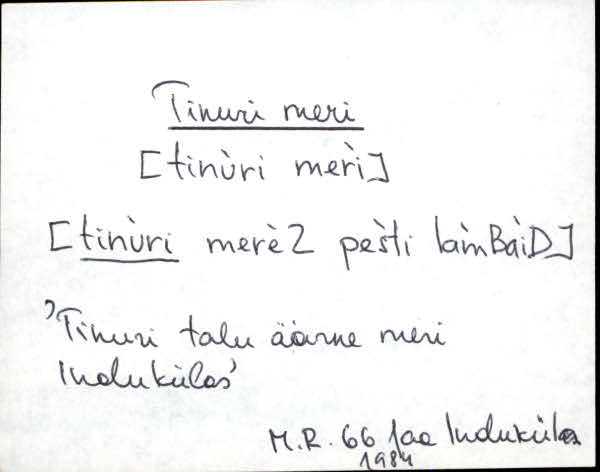 Tinuri meri
[tinùri merì]
[tinùri merèZ pèšti làmBàiD]
'Tinuri talu äärne meri
Indukülas'
M.R. 66 Jaa Induküla
1984